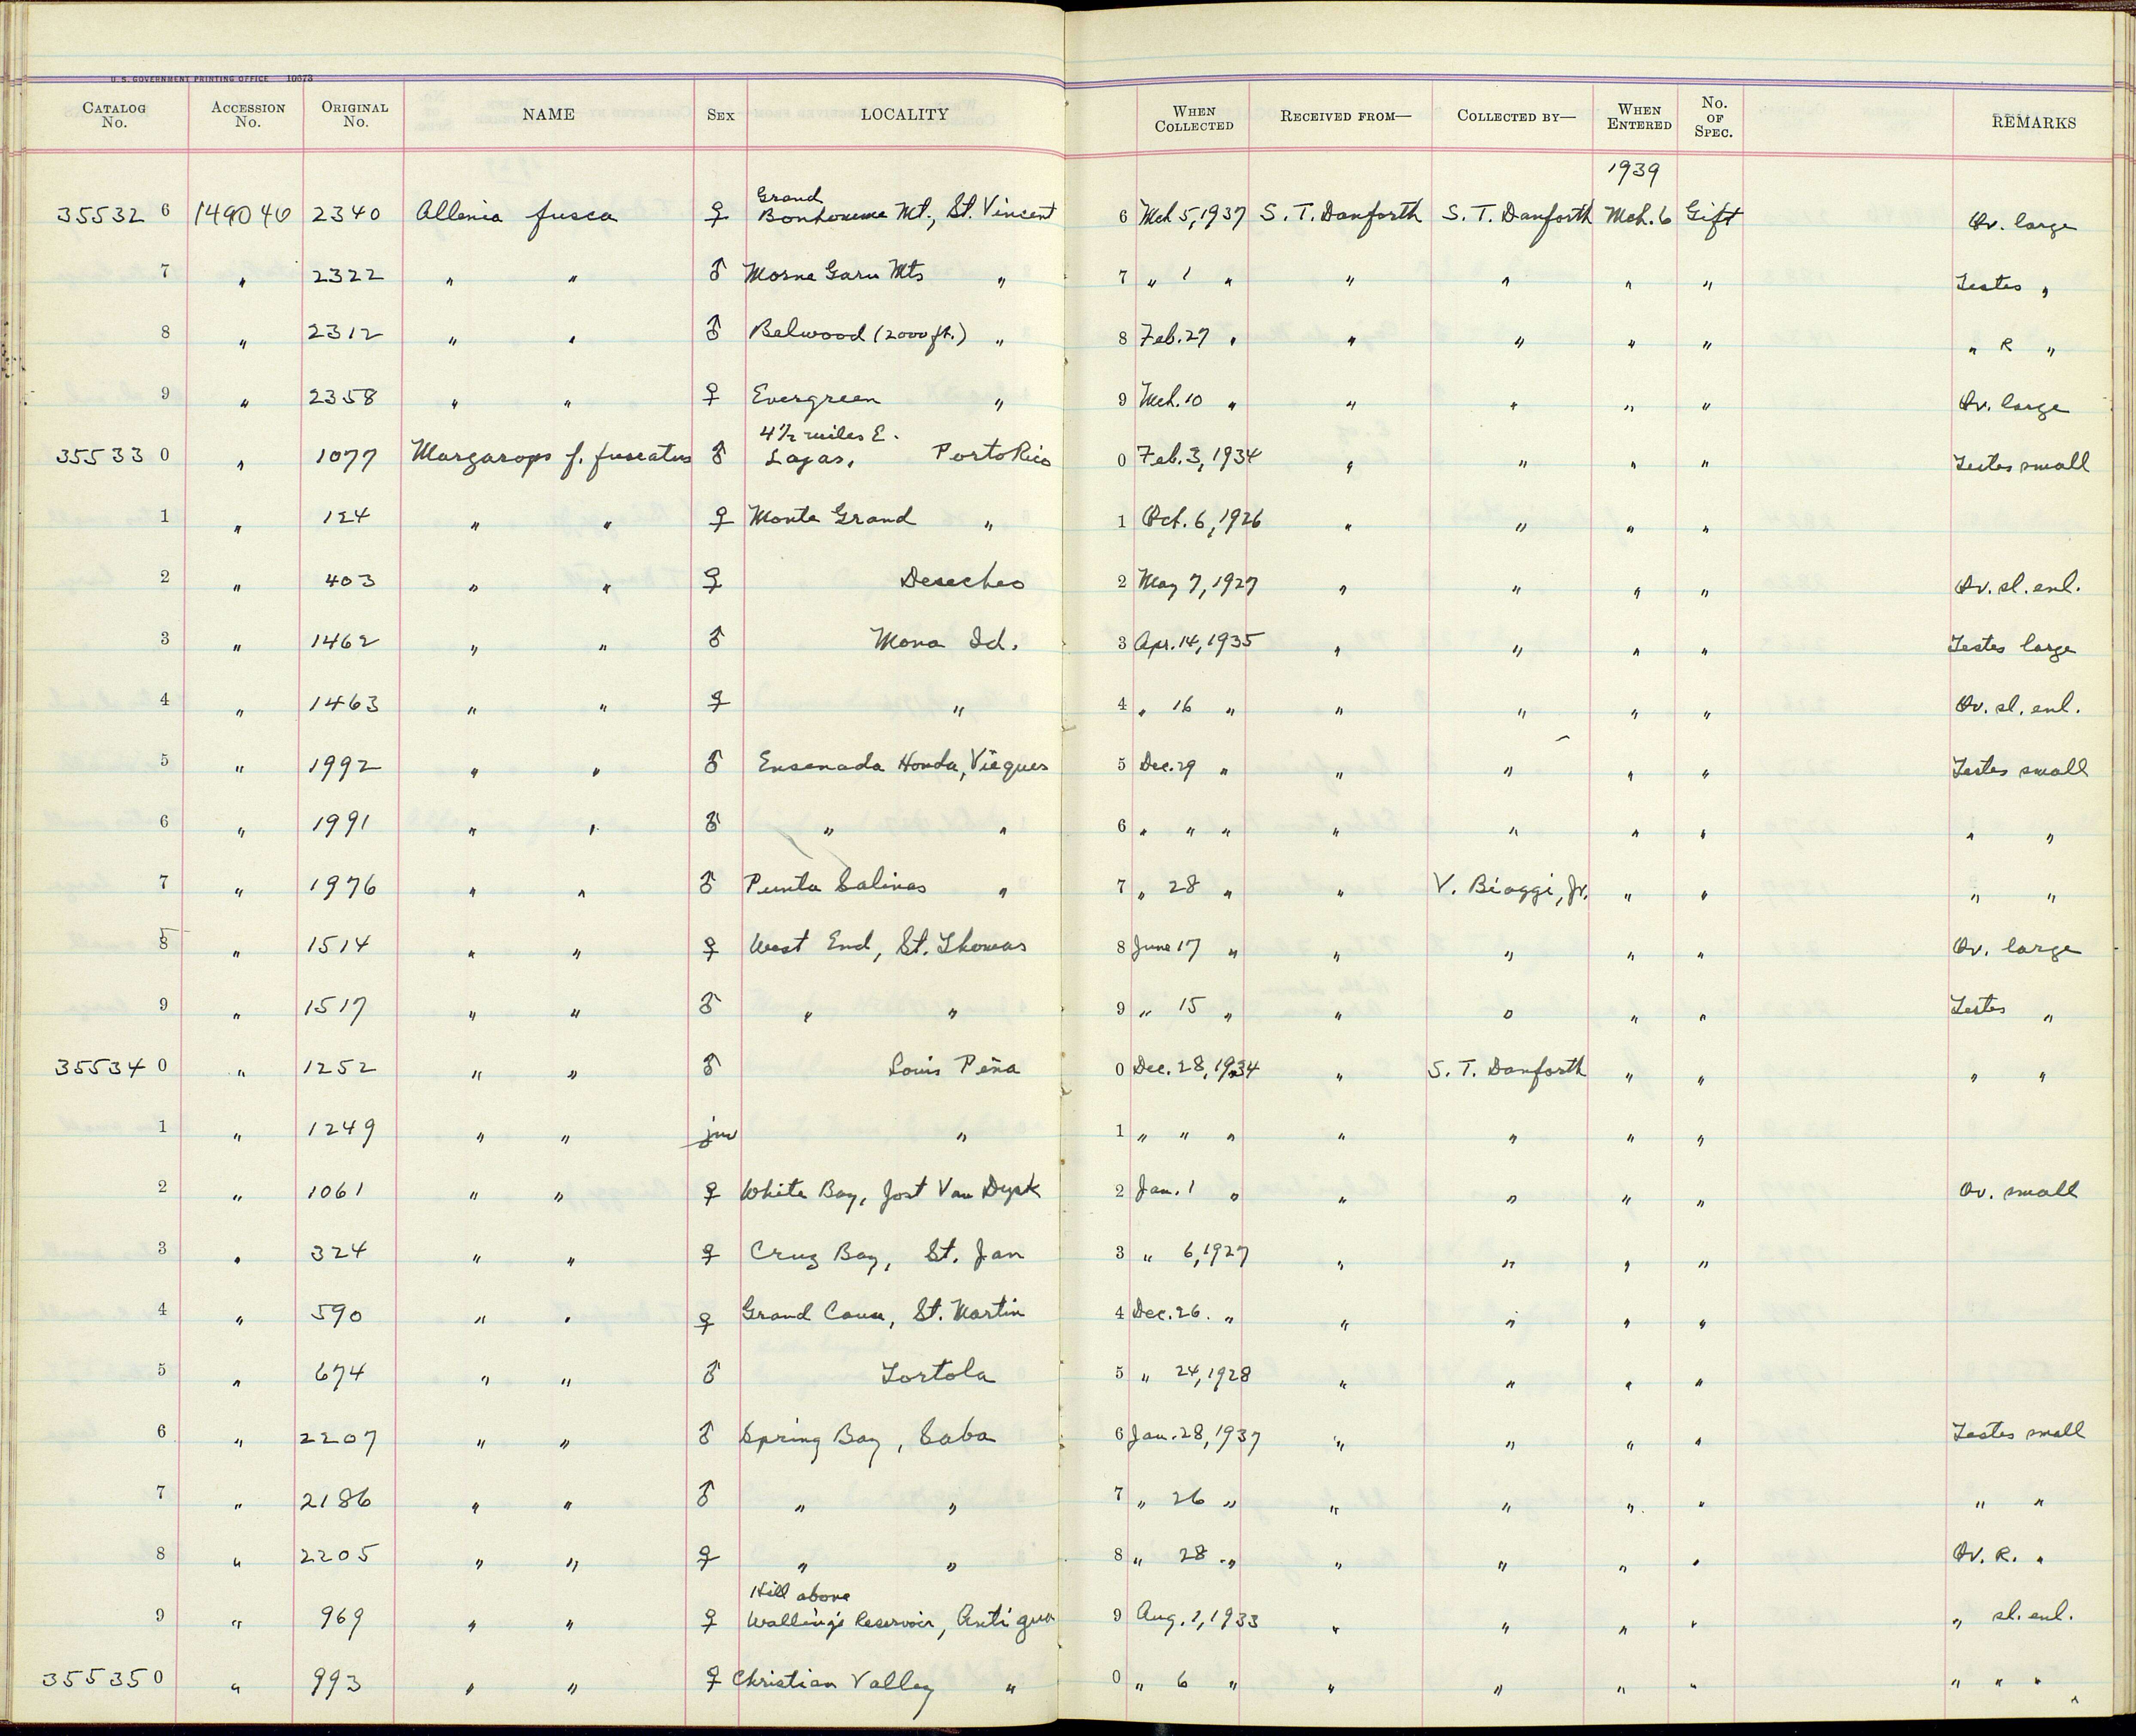 U. S. GOVERNMENT PRINTING OFFICE 10673
CATALOG No. ACCESSION No. ORIGINAL No. NAME SEX LOCALITY WHEN COLLECTED RECEIVED FROM— COLLECTED BY— WHEN ENTERED No. OF SPEC. REMARKS
1939
35532 6 149040 2340 Allenia fusca ♀ Grand Bonhomme Mt., St. Vincent 6 Mch 5, 1937 S. T. Danforth S. T. Danforth Mch. 6 Gift Ov. large
7 " 2322 " " ♂ Morne Garu Mts " 7 " 1 " " " " " Testes "
8 " 2312 " " ♂ Belwood (2000 ft.) " 8 Feb. 27 " " " " " " R "
9 " 2358 " " ♀ Evergreen " 9 Mch. 10 " " " " " Ov. large
35533 0 " 1077 Margarops f. fuscatus ♂ 4½ miles E. Lajas, Porto Rico 0 Feb. 3, 1934 " " " " Testes small
1 " 124 " " ♀ Monte Grand " 1 Oct. 6, 1926 " " " "
2 " 403 " " ♀ Desecheo 2 May 7, 1927 " " " " Ov. sl. enl.
3 " 1462 " " ♂ Mona Id. 3 Apr. 14, 1935 " " " " Testes large
4 " 1463 " " ♀ " 4 " 16 " " " " " Ov. sl. enl.
5 " 1992 " " ♂ Ensenada Honda, Vieques 5 Dec. 29 " " " " " Testes small
6 " 1991 " " ♂ " " 6 " " " " " " " " "
7 " 1976 " " ♂ Punta Salinas " 7 " 28 " " V. Biaggi, Jr. " " " "
8 " 1514 " " ♀ West End, St. Thomas 8 June 17 " " " " " Ov. large
9 " 1517 " " ♂ " " 9 " 15 " " " " " Testes "
35534 0 " 1252 " " ♂ Louis Peña 0 Dec. 28, 1934 " S. T. Danforth " " " "
1 " 1249 " " juv " 1 " " " " " " "
2 " 1061 " " ♀ White Bay, Jost Van Dyck 2 Jan. 1 " " " " " Ov. small
3 " 324 " " ♀ Cruz Bay, St. Jan 3 " 6, 1927 " " " "
4 " 590 " " ♀ Grand Case, St. Martin 4 Dec. 26. " " " " "
5 " 674 " " ♂ Tortola 5 " 24, 1928 " " " "
6 " 2207 " " ♂ Spring Bay, Saba 6 Jan. 28, 1937 " " " " Testes small
7 " 2186 " " ♂ " " 7 " 26 " " " " " " "
8 " 2205 " " ♀ " " 8 " 28 " " " " " Ov. R. "
9 " 969 " " ♀ Hill above Walling's Reservoir, Antigua 9 Aug. 1, 1933 " " " " " sl. enl.
35535 0 " 993 " " ♀ Christian Valley " 0 " 6 " " " " " " " "